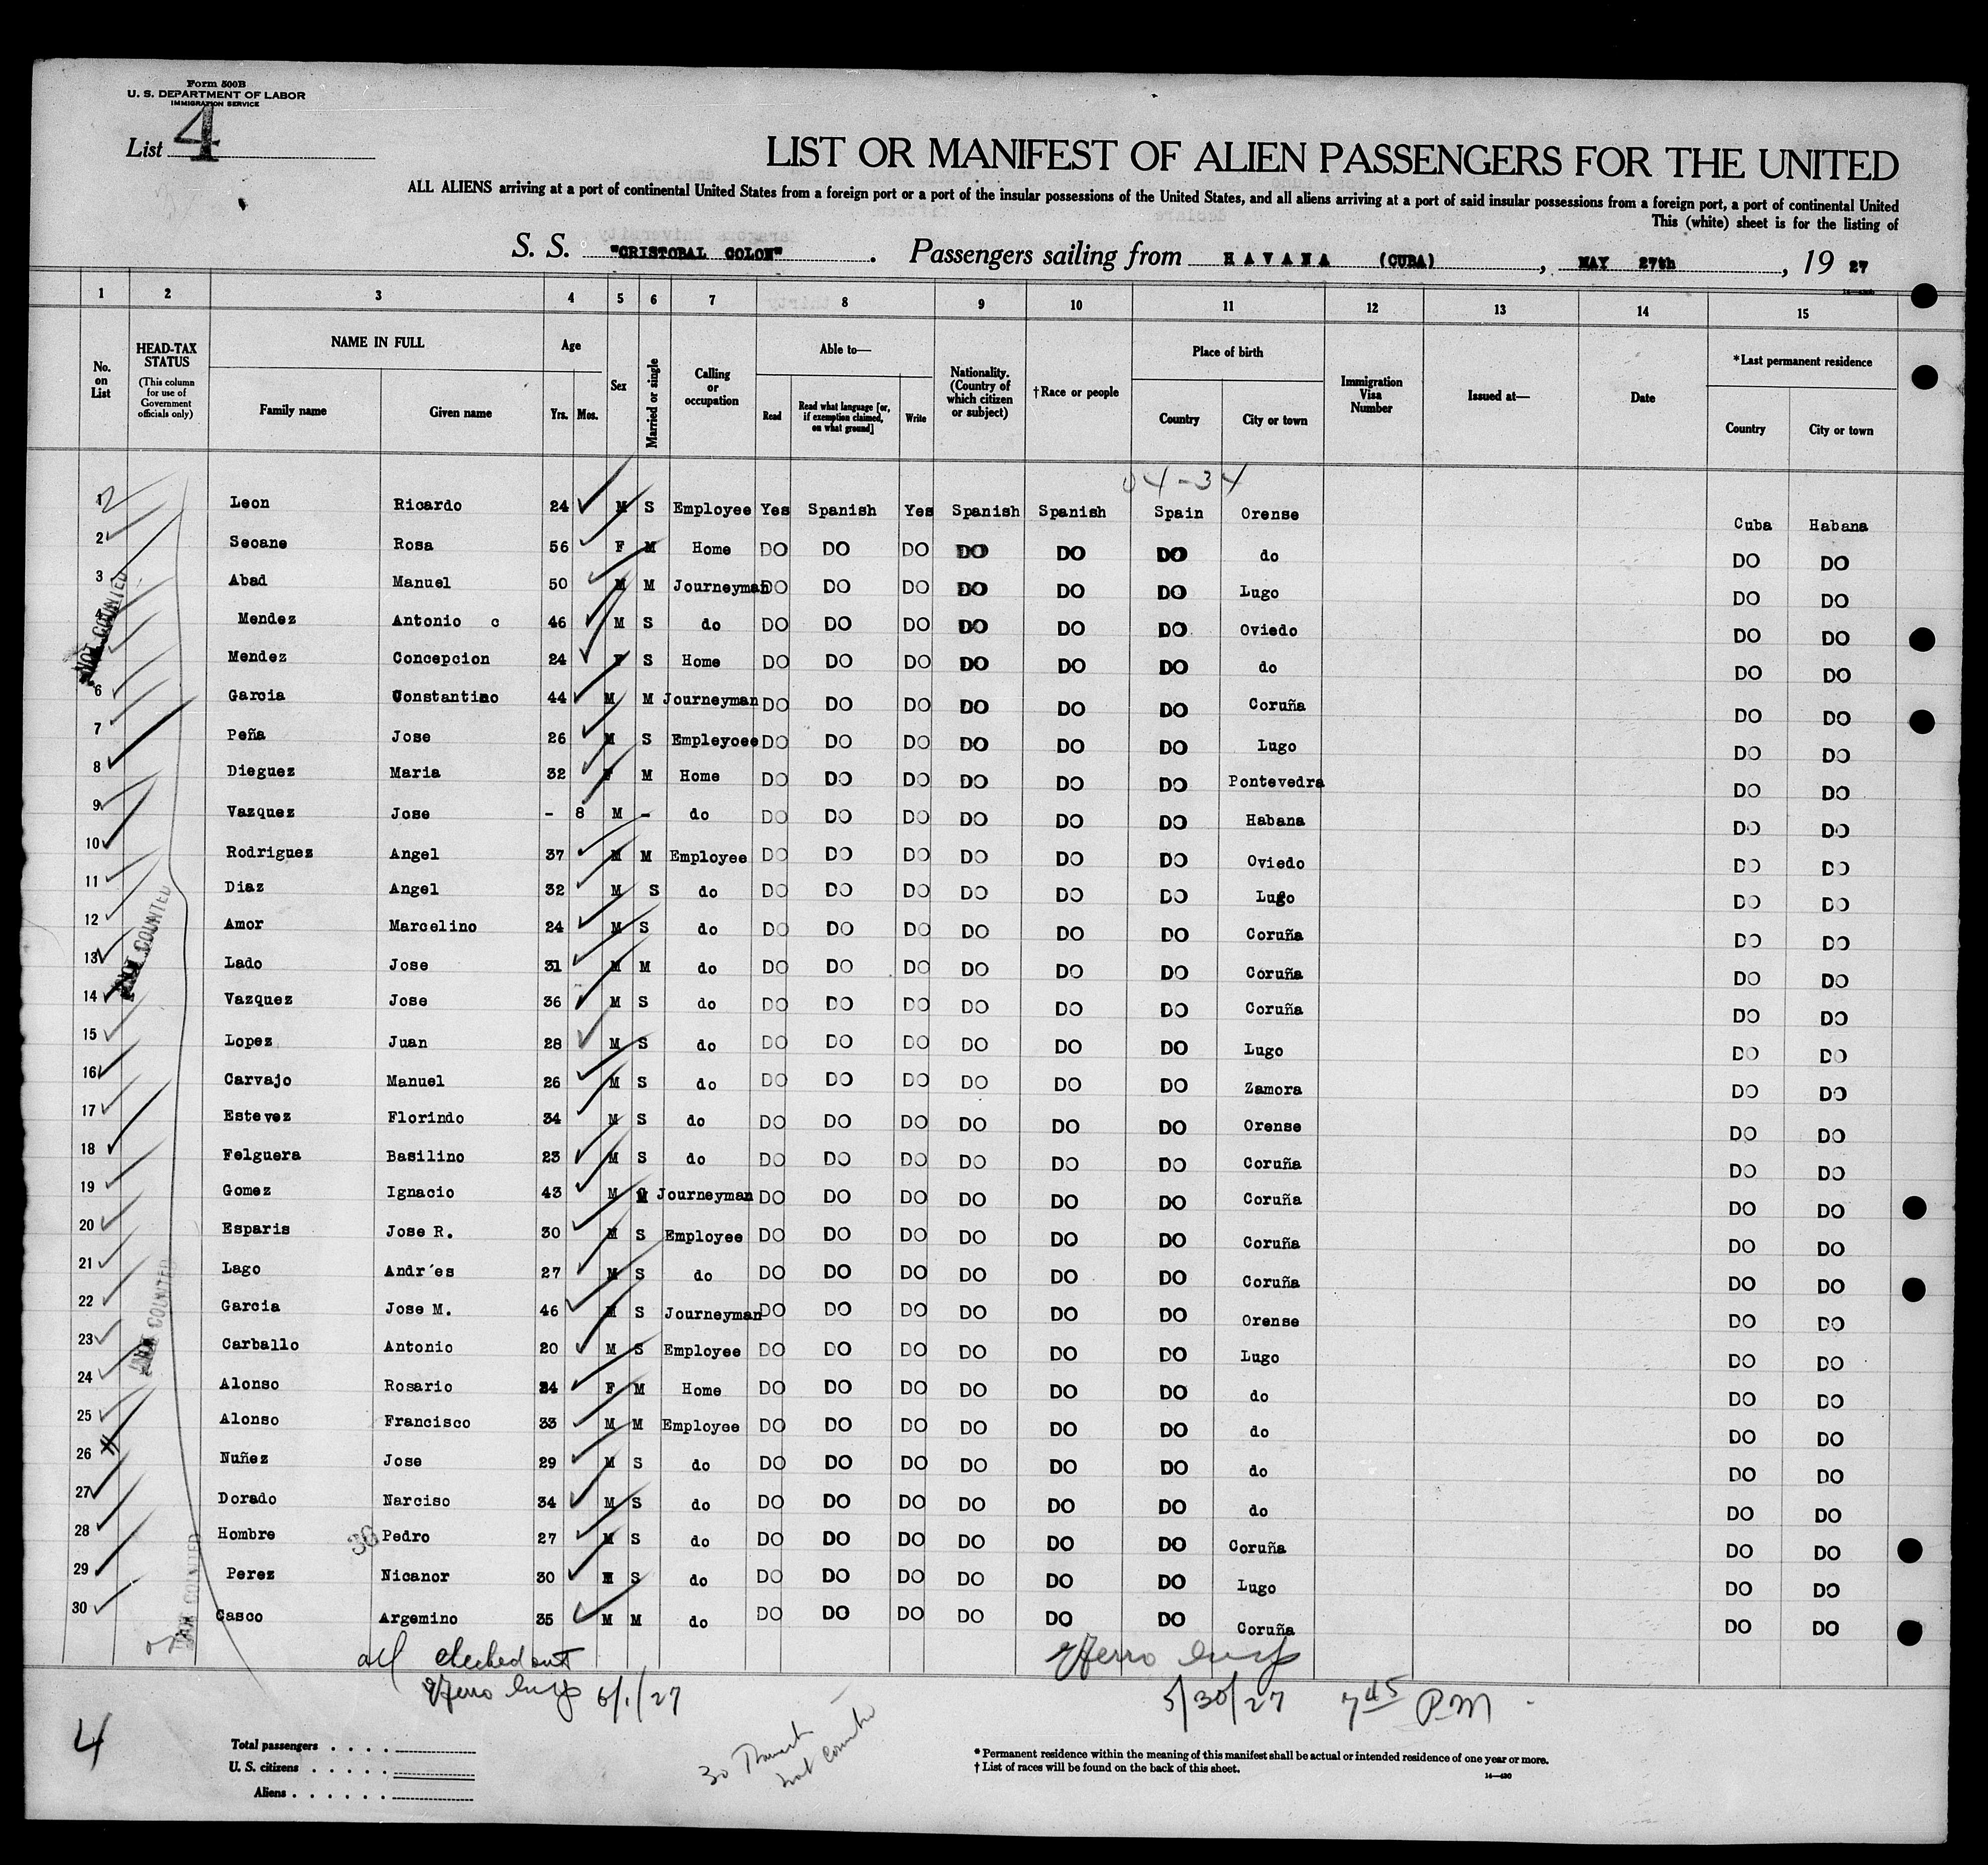 Form 500B
U. S. DEPARTMENT OF LABOR
IMMIGRATION SERVICE
List 4
LIST OR MANIFEST OF ALIEN PASSENGERS FOR THE UNITED
ALL ALIENS arriving at a port of continental United States from a foreign port or a port of the insular possessions of the United States, and all aliens arriving at a port of said insular possessions from a foreign port, a port of continental United
This (white) sheet is for the listing of
S. S. "CRISTOBAL COLON". Passengers sailing from HAVANA (CUBA), MAY 27th, 19 27
1 2 3 4 5 6 7 8 9 10 11 12 13 14 15
No. on List
HEAD-TAX STATUS (This column for use of Government officials only)
NAME IN FULL
Family name Given name
Age
Yrs. Mos.
Sex
Married or single
Calling or occupation
Able to—
Read
Read what language [or, if exemption claimed, on what ground]
Write
Nationality. (Country of which citizen or subject)
†Race or people
Place of birth
Country City or town
Immigration Visa Number
Issued at—
Date
*Last permanent residence
Country City or town
04-34
1 Leon Ricardo 24 M S Employee Yes Spanish Yes Spanish Spanish Spain Orense Cuba Habana
2 Seoane Rosa 56 F M Home DO DO DO DO DO DO do DO DO
3 Abad Manuel 50 M M Journeyman DO DO DO DO DO DO Lugo DO DO
4 Mendez Antonio c 46 M S do DO DO DO DO DO DO Oviedo DO DO
Mendez Concepcion 24 F S Home DO DO DO DO DO DO do DO DO
6 Garcia Constantino 44 M M Journeyman DO DO DO DO DO DO Coruña DO DO
7 Peña Jose 26 M S Empleyoee DO DO DO DO DO DO Lugo DO DO
8 Dieguez Maria 32 F M Home DO DO DO DO DO DO Pontevedra DO DO
9 Vazquez Jose - 8 M - do DO DO DO DO DO DO Habana DO DO
10 Rodriguez Angel 37 M M Employee DO DO DO DO DO DO Oviedo DO DO
11 Diaz Angel 32 M S do DO DO DO DO DO DO Lugo DO DO
12 Amor Marcelino 24 M S do DO DO DO DO DO DO Coruña DO DO
13 Lado Jose 31 M M do DO DO DO DO DO DO Coruña DO DO
14 Vazquez Jose 36 M S do DO DO DO DO DO DO Coruña DO DO
15 Lopez Juan 28 M S do DO DO DO DO DO DO Lugo DO DO
16 Carvajo Manuel 26 M S do DO DO DO DO DO DO Zamora DO DO
17 Estevez Florindo 34 M S do DO DO DO DO DO DO Orense DO DO
18 Felguera Basilino 23 M S do DO DO DO DO DO DO Coruña DO DO
19 Gomez Ignacio 43 M M Journeyman DO DO DO DO DO DO Coruña DO DO
20 Esparis Jose R. 30 M S Employee DO DO DO DO DO DO Coruña DO DO
21 Lago Andr´es 27 M S do DO DO DO DO DO DO Coruña DO DO
22 Garcia Jose M. 46 M S Journeyman DO DO DO DO DO DO Orense DO DO
23 Carballo Antonio 20 M S Employee DO DO DO DO DO DO Lugo DO DO
24 Alonso Rosario 24 F M Home DO DO DO DO DO DO do DO DO
25 Alonso Francisco 33 M M Employee DO DO DO DO DO DO do DO DO
26 Nuñez Jose 29 M S do DO DO DO DO DO DO do DO DO
27 Dorado Narciso 34 M S do DO DO DO DO DO DO do DO DO
28 Hombre 30 Pedro 27 M S do DO DO DO DO DO DO Coruña DO DO
29 Perez Nicanor 30 M S do DO DO DO DO DO DO Lugo DO DO
30 Casco Argemino 35 M M do DO DO DO DO DO DO Coruña DO DO
NOT COUNTED
NOT COUNTED
NOT COUNTED
NOT COUNTED
all checked out
Ferro Insp 6/1/27
Ferro Insp
5/30/27 7 45 PM
4
30 Transit
not counted
Total passengers
U. S. citizens
Aliens
* Permanent residence within the meaning of this manifest shall be actual or intended residence of one year or more.
† List of races will be found on the back of this sheet.
14—430